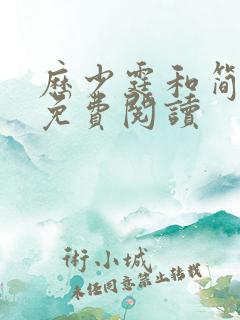 历少霆和简
免費閱讀
術小城
未经同意禁止转载